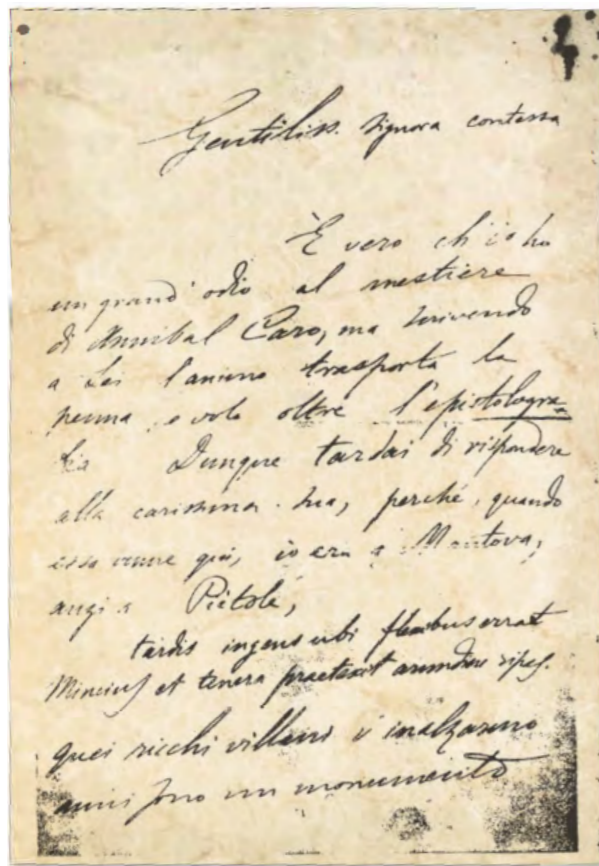 Gentiliss. signora contessa
È vero ch'io ho
un grand' odio al mestiere
di Annibal Caro, ma scrivendo
a Lei l'animo trasporta la
penna, e volo oltre l'epistologra-
fia Dunque tardai di rispondere
alla carissima sua, perché, quando
essa venne qui, io era a Mantova,
anzi a Pietole,
tardis ingens ubi flexibus errat
Mincius et tenera praetexit arundine ripas.
Quei ricchi villani v'inalzarono
anni sono un monumento